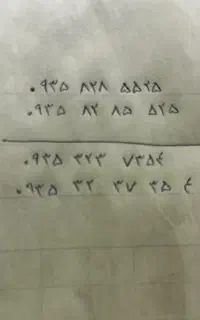 ۰۹۳۵ ۸۲۸ ۵۵۲۵
۰۹۳۵ ۸۲ ۸۵ ۵۲۵
۰۹۳۵ ۳۲۳ ۷۳۵۴
۰۹۳۵ ۳۲ ۳۷ ۳۵ ۴